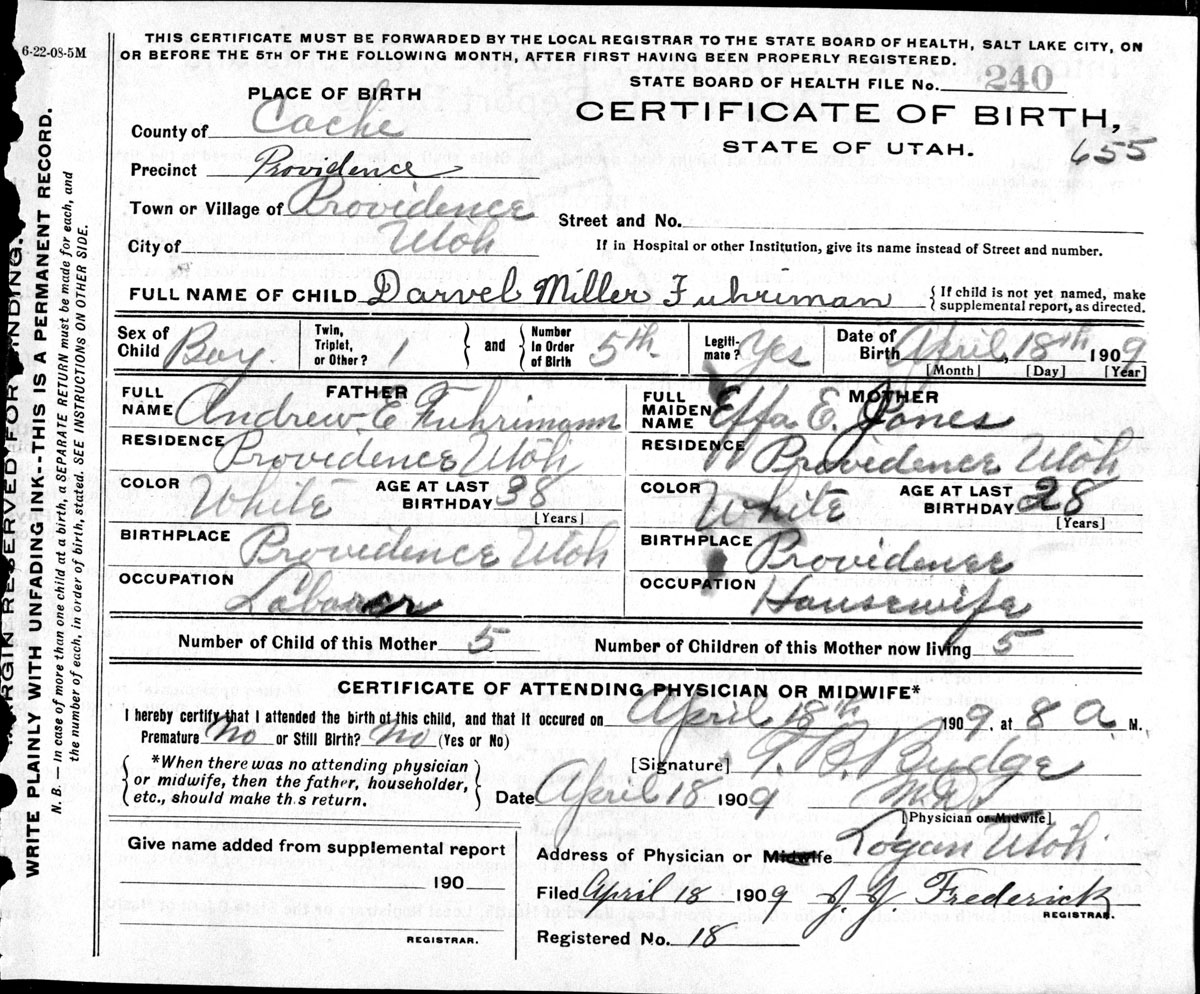 6-22-08-5M
THIS CERTIFICATE MUST BE FORWARDED BY THE LOCAL REGISTRAR TO THE STATE BOARD OF HEALTH, SALT LAKE CITY, ON
OR BEFORE THE 5TH OF THE FOLLOWING MONTH, AFTER FIRST HAVING BEEN PROPERLY REGISTERED.
STATE BOARD OF HEALTH FILE No. 240
PLACE OF BIRTH
CERTIFICATE OF BIRTH,
STATE OF UTAH. 655
County of Cache
Precinct Providence
Town or Village of Providence
Street and No.
City of Utah
If in Hospital or other Institution, give its name instead of Street and number.
FULL NAME OF CHILD Darvel Miller Fuhriman
{If child is not yet named, make
supplemental report, as directed.
Sex of Child Boy
Twin, Triplet, or Other? 1
} and {
Number In Order of Birth 5th
Legiti-mate? Yes
Date of Birth April, 18th 1909
[Month] [Day] [Year]
FATHER
FULL NAME Andrew E Fuhrimann
RESIDENCE Providence Utah
COLOR White
AGE AT LAST BIRTHDAY 38
[Years]
BIRTHPLACE Providence Utah
OCCUPATION Laborer
MOTHER
FULL MAIDEN NAME Effa E. Jones
RESIDENCE Providence Utah
COLOR White
AGE AT LAST BIRTHDAY 28
[Years]
BIRTHPLACE Providence
OCCUPATION Housewife
Number of Child of this Mother 5
Number of Children of this Mother now living 5
CERTIFICATE OF ATTENDING PHYSICIAN OR MIDWIFE*
I hereby certify that I attended the birth of this child, and that it occured on April 18th 1909, at 8 a. M.
Premature No or Still Birth? No (Yes or No)
*When there was no attending physician
or midwife, then the father, householder,
etc., should make th s return.
[Signature] T. B. Budge
Date April 18 1909 M.D.
[Physician or Midwife]
Address of Physician or Midwife Logan Utah
Give name added from supplemental report
190
REGISTRAR.
Filed April 18 1909 J J Frederick
REGISTRAR.
Registered No. 18
RGIN RESERVED FOR NDING.
WRITE PLAINLY WITH UNFADING INK--THIS IS A PERMANENT RECORD.
N. B. — In case of more than one child at a birth, a SEPARATE RETURN must be made for each, and
the number of each, in order of birth, stated. SEE INSTRUCTIONS ON OTHER SIDE.